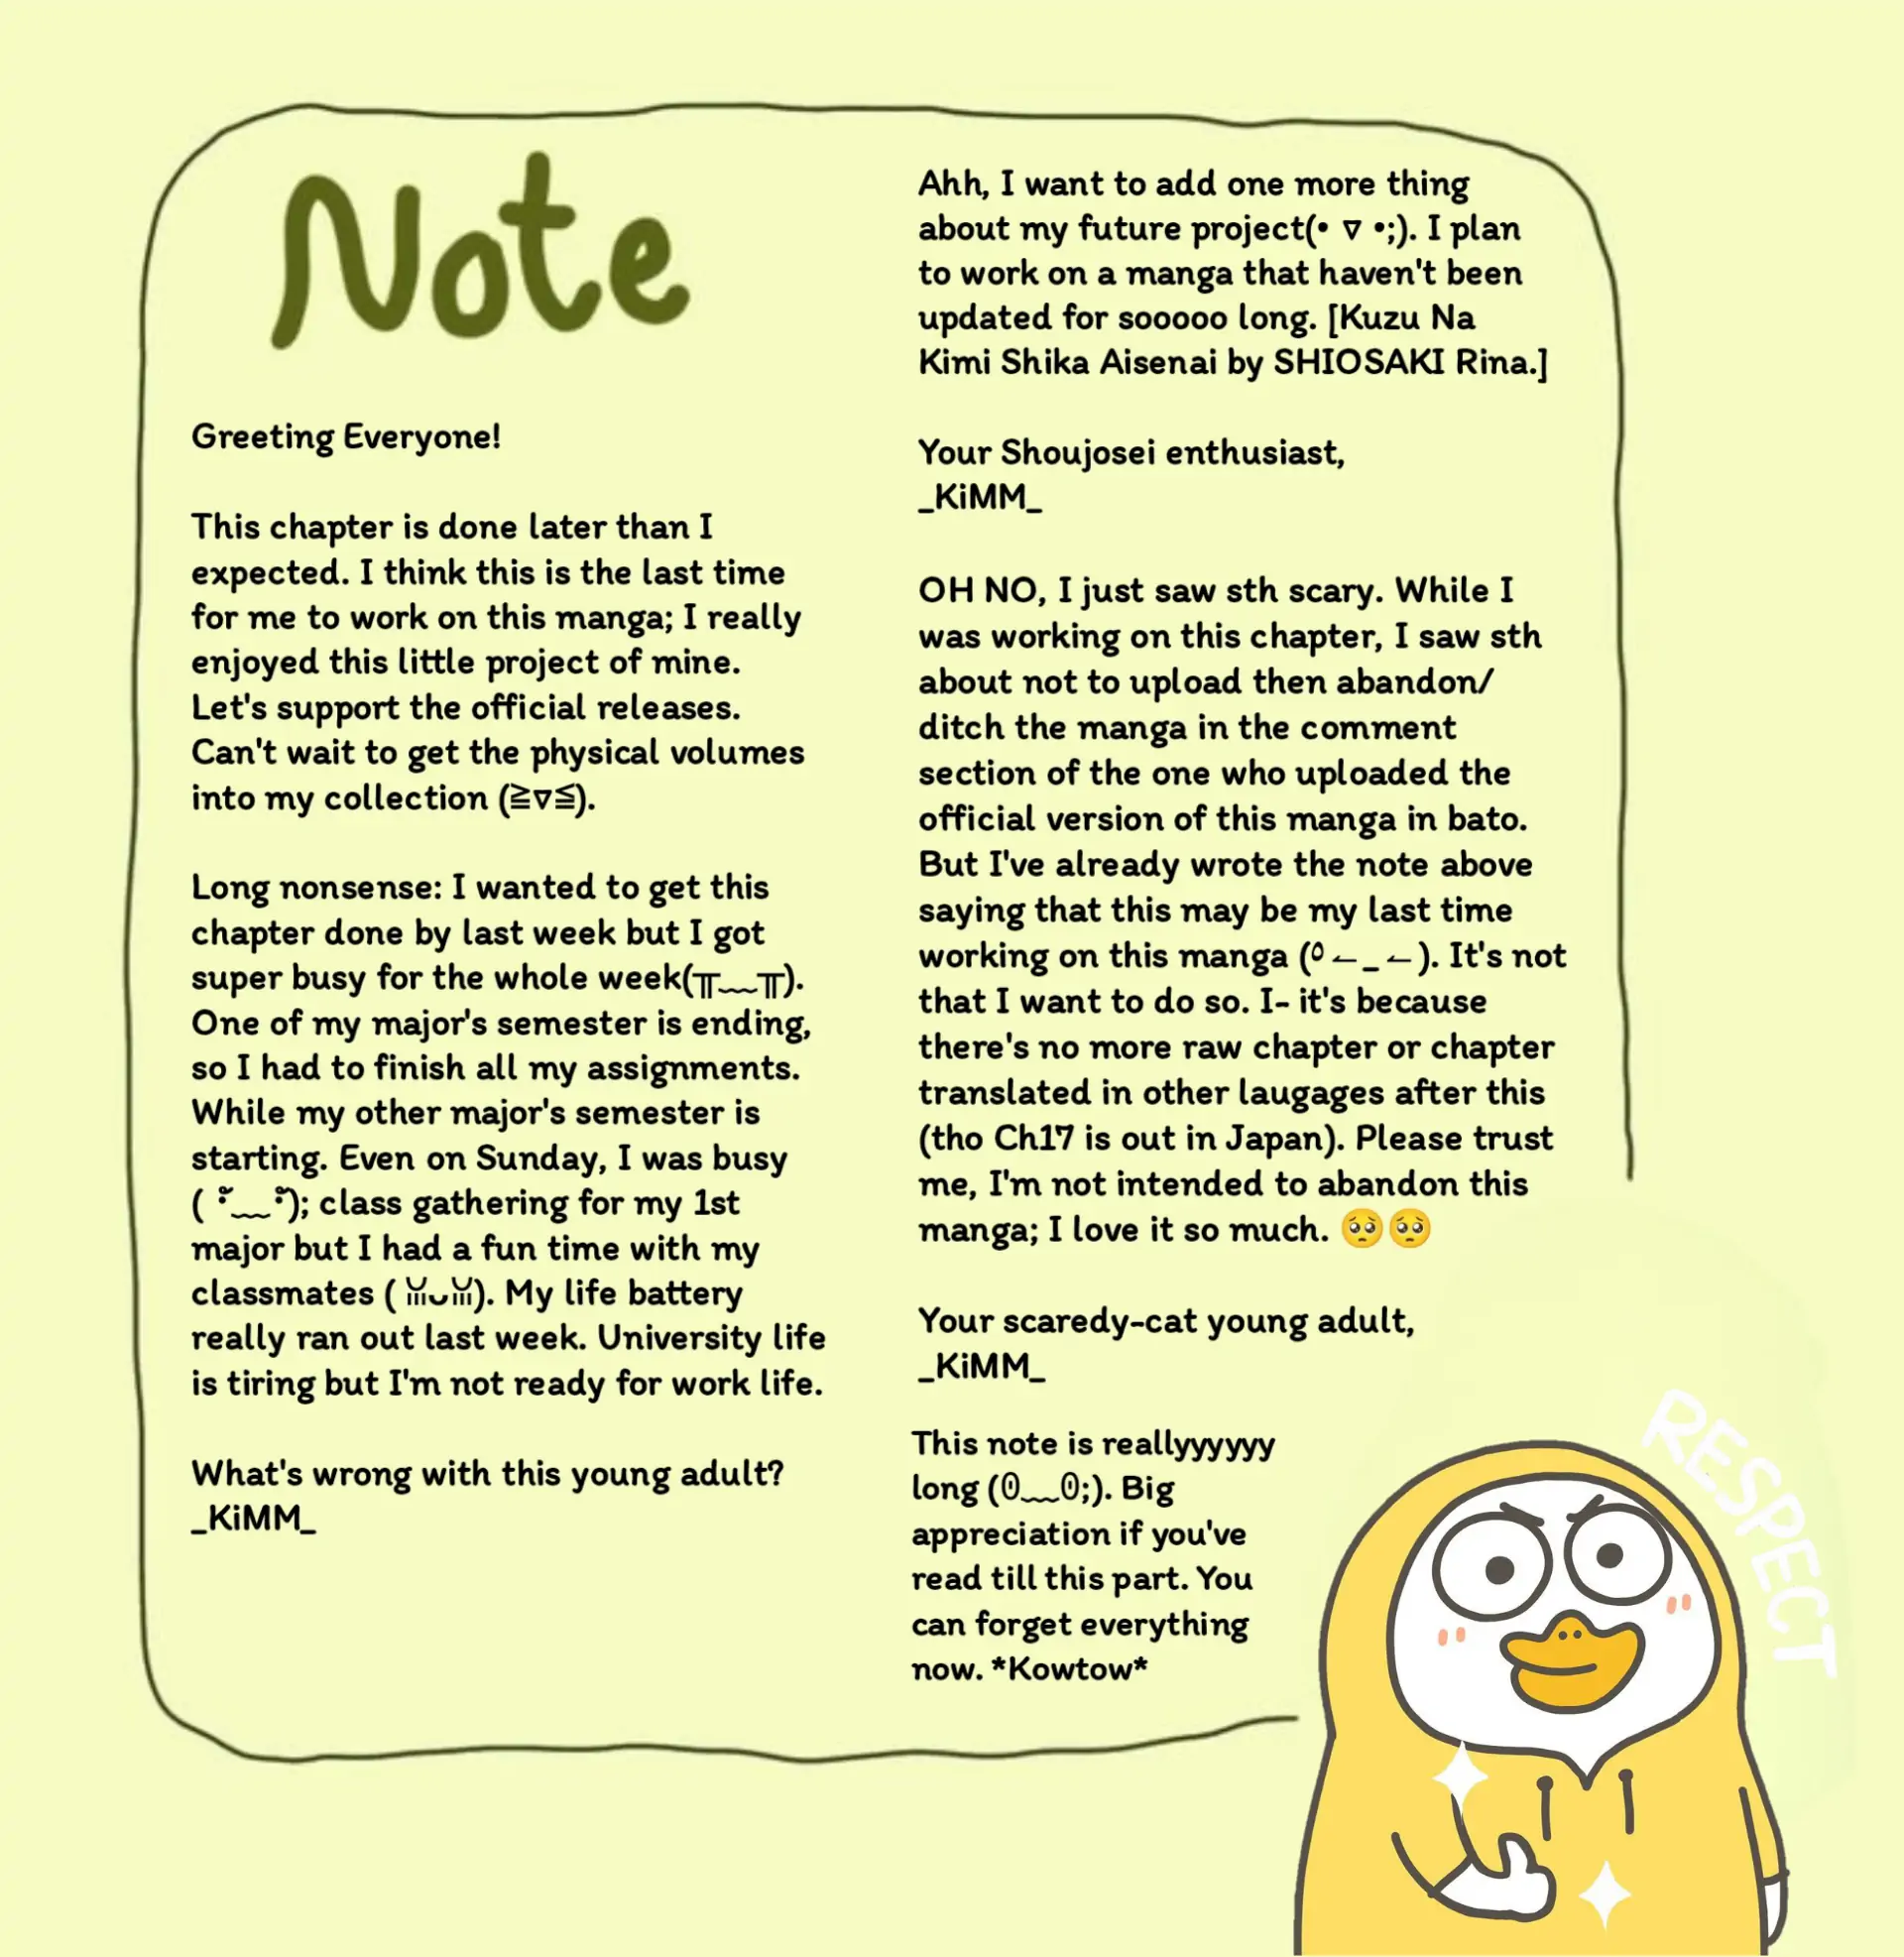 Note
Greeting Everyone!
This chapter is done later than I
expected. I think this is the last time
for me to work on this manga; I really
enjoyed this little project of mine.
Let's support the official releases.
Can't wait to get the physical volumes
into my collection (≧▽≦).
Long nonsense: I wanted to get this
chapter done by last week but I got
super busy for the whole week(╥﹏╥).
One of my major's semester is ending,
so I had to finish all my assignments.
While my other major's semester is
starting. Even on Sunday, I was busy
( ・᷄﹏・᷅); class gathering for my 1st
major but I had a fun time with my
classmates ( ꈍᴗꈍ). My life battery
really ran out last week. University life
is tiring but I'm not ready for work life.
What's wrong with this young adult?
_KiMM_
Ahh, I want to add one more thing
about my future project(• ▽ •;). I plan
to work on a manga that haven't been
updated for sooooo long. [Kuzu Na
Kimi Shika Aisenai by SHIOSAKI Rina.]
Your Shoujosei enthusiast,
_KiMM_
OH NO, I just saw sth scary. While I
was working on this chapter, I saw sth
about not to upload then abandon/
ditch the manga in the comment
section of the one who uploaded the
official version of this manga in bato.
But I've already wrote the note above
saying that this may be my last time
working on this manga (⁠⁰⁠ ⁠↼⁠_⁠ ⁠↼⁠). It's not
that I want to do so. I- it's because
there's no more raw chapter or chapter
translated in other laugages after this
(tho Ch17 is out in Japan). Please trust
me, I'm not intended to abandon this
manga; I love it so much. 🥺🥺
Your scaredy-cat young adult,
_KiMM_
This note is reallyyyyyy
long (⁠ʘ⁠﹏⁠ʘ⁠;). Big
appreciation if you've
read till this part. You
can forget everything
now. *Kowtow*
RESPECT